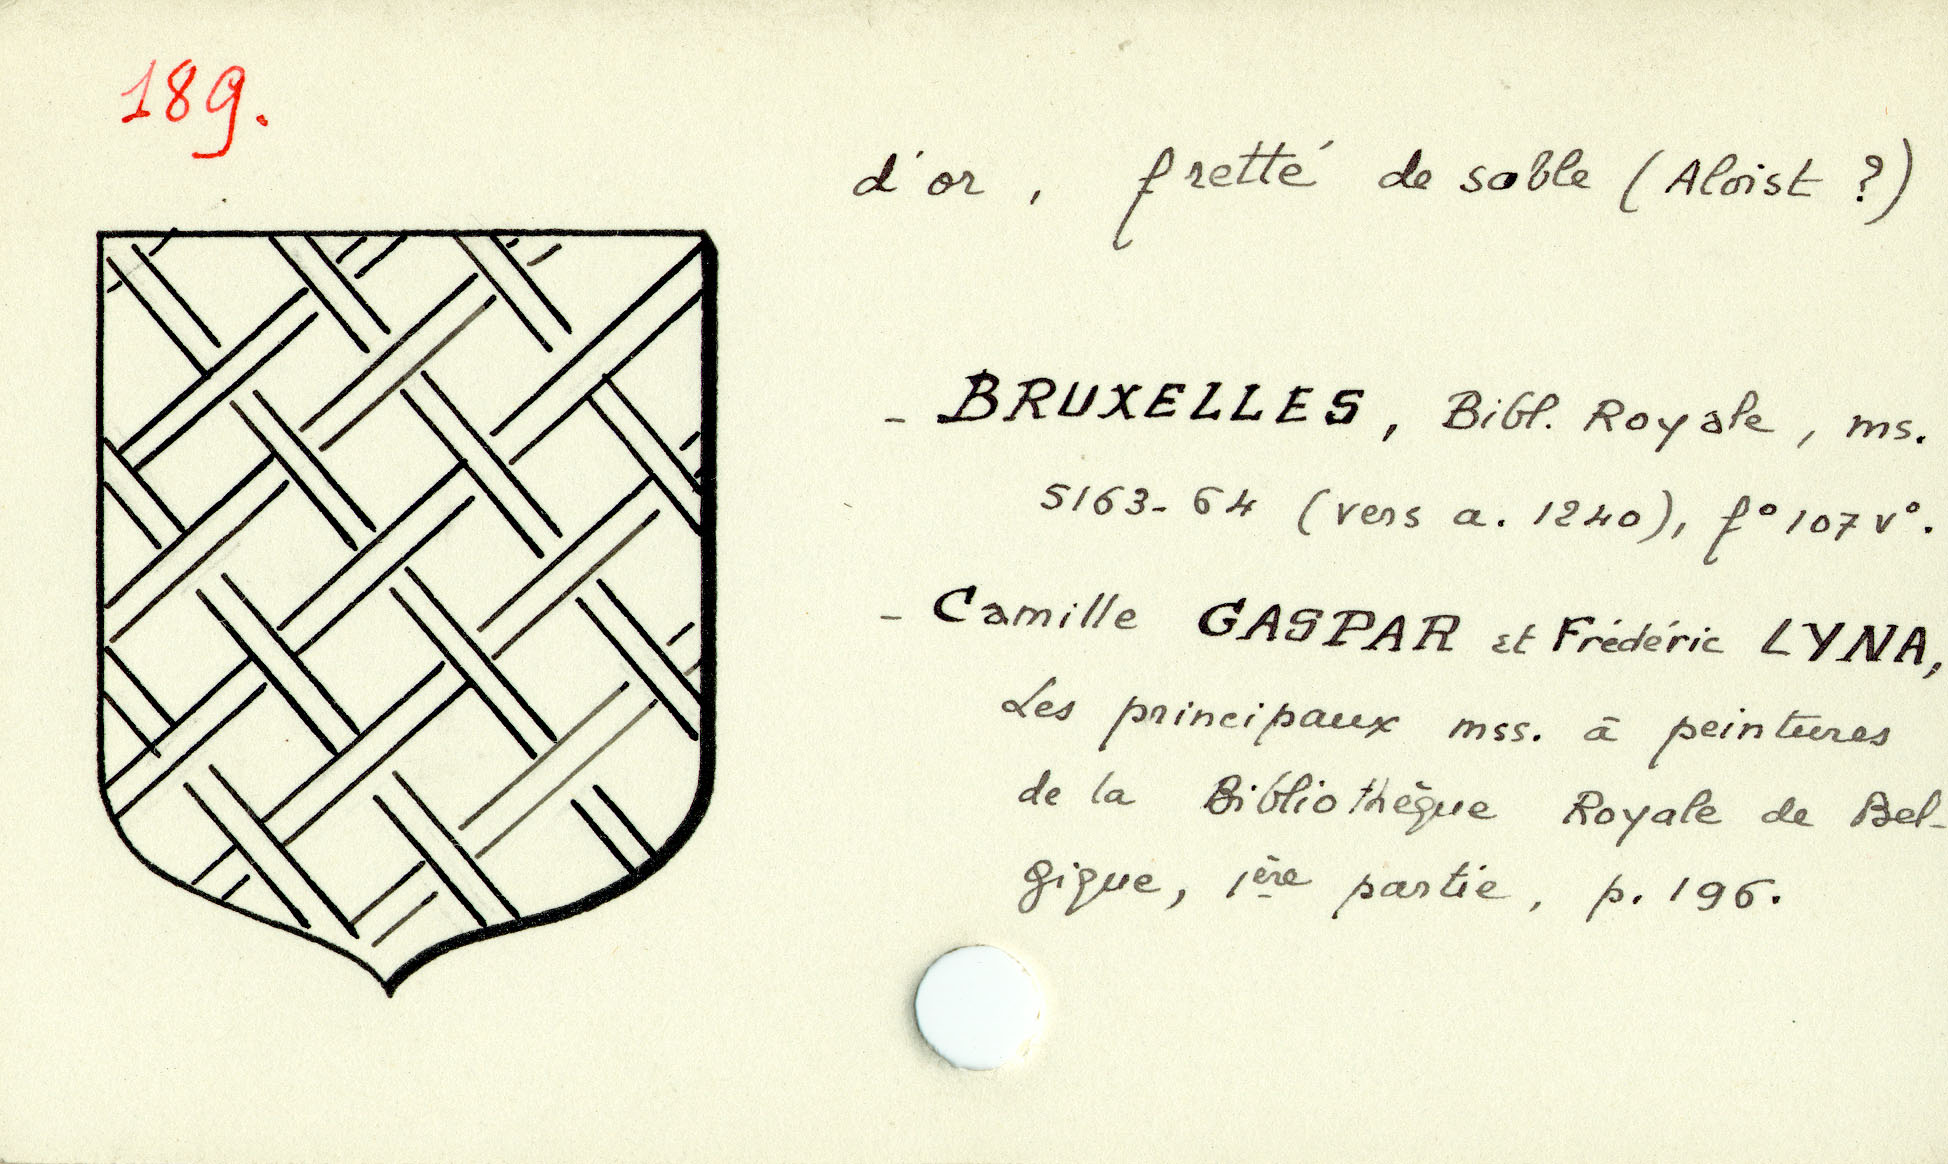 189.
d'or, fretté de sable (Aloist ?)
- BRUXELLES, Bibl. Royale, ms.
5163-64 (vers a. 1240), f° 107 v°.
- Camille GASPAR et Frédéric LYNA,
Les principaux mss. à peintures
de la Bibliothèque Royale de Bel-
gique, 1ère partie, p. 196.